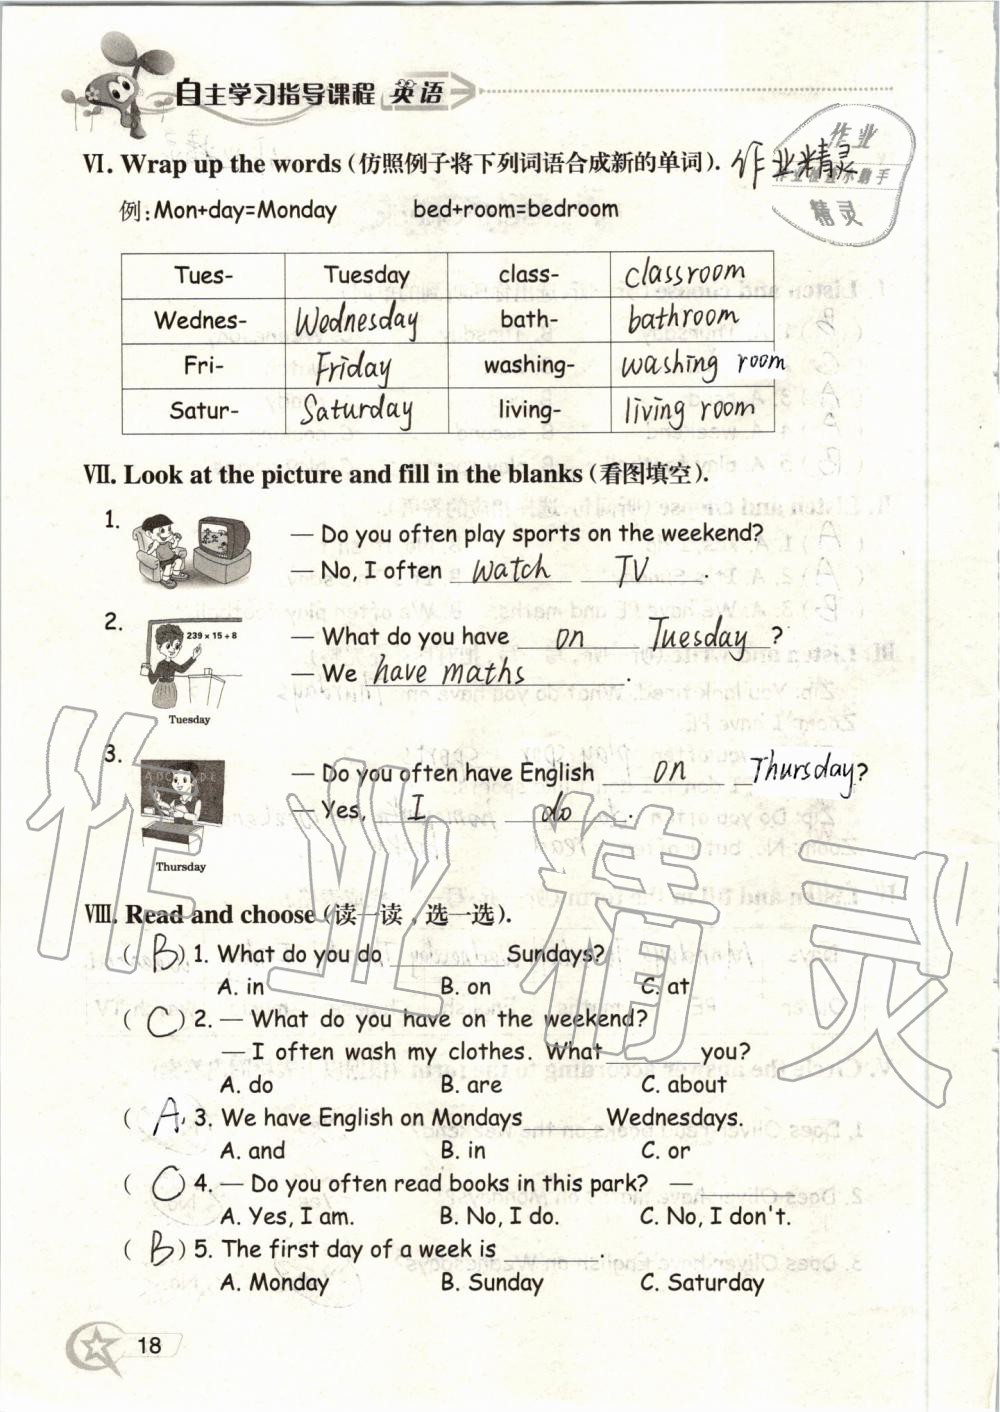 自主学习指导课程 英语
作业
精灵
作业精灵
VI. Wrap up the words (仿照例子将下列词语合成新的单词).
例:Mon+day=Monday bed+room=bedroom
Tues- Tuesday class- classroom
Wednes- Wednesday bath- bathroom
Fri- Friday washing- washing room
Satur- Saturday living- living room
VII. Look at the picture and fill in the blanks (看图填空).
1.
— Do you often play sports on the weekend?
— No, I often watch TV .
2.
239 × 15 ÷ 8
— What do you have on Tuesday ?
— We have maths .
Tuesday
3.
— Do you often have English on Thursday?
— Yes, I do .
Thursday
作业精灵
VIII. Read and choose (读一读，选一选).
( B ) 1. What do you do ______ Sundays?
A. in B. on C. at
( C ) 2. — What do you have on the weekend?
— I often wash my clothes. What ______ you?
A. do B. are C. about
( A ) 3. We have English on Mondays ______ Wednesdays.
A. and B. in C. or
( C ) 4. — Do you often read books in this park? — ______
A. Yes, I am. B. No, I do. C. No, I don't.
( B ) 5. The first day of a week is ______ .
A. Monday B. Sunday C. Saturday
18